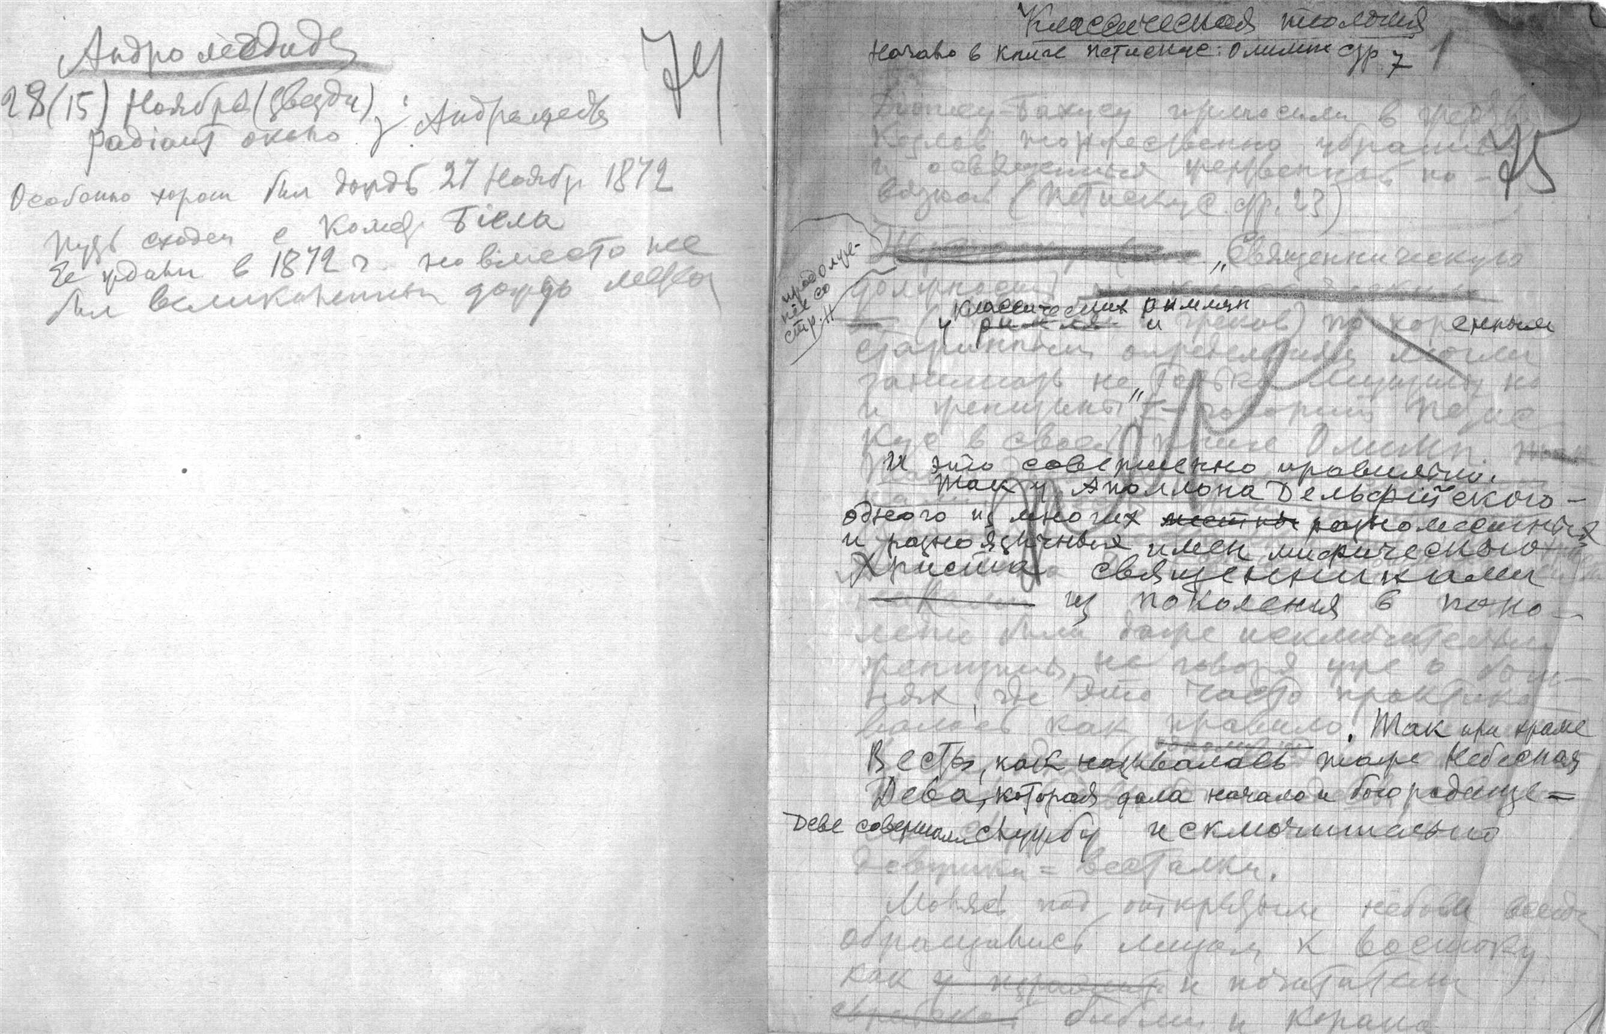 Андромедиды
74
28 (15) Ноября (звезды)
радiант около γ Андромеды
Особенно хорош был дождь 27 Ноябр 1872
Путь сходен с Комет Бiелы
Ее ждали в 1872 г. но вместо нее
был великолепный дождь
Классическая теология
Начало в книге Петискус: Олимп стр. 7
1
75
Бахусу приносили в
Козлов торжественно
и освященных по-
вязкой (Петискус стр. 23)
продолже-
ние со
стр. 11
„Священническую
должность
классических римлян
у и греков) по коренным
старинным определениям могли
занимать не только мужчины но
и женщины" — говорит Петис
кус в своей книге Олимп
И это совершенно правильно.
Так у Аполлона Дельфийского —
одного из многих разноместных
и разноязычных имен мифического
Христа священниками
из поколения в поко-
ление были даже исключительно
женщины, не говоря уже о
где это часто практико
валось как правило. Так при храме
Весты, как называлась тоже Небесная
Дева, которая дала начало и богородице=
Деве совершали службу исключительно
девушки = весталки.
Молясь под открытым небом всегда
обращались лицом к востоку
как и почитатели
библии и корана